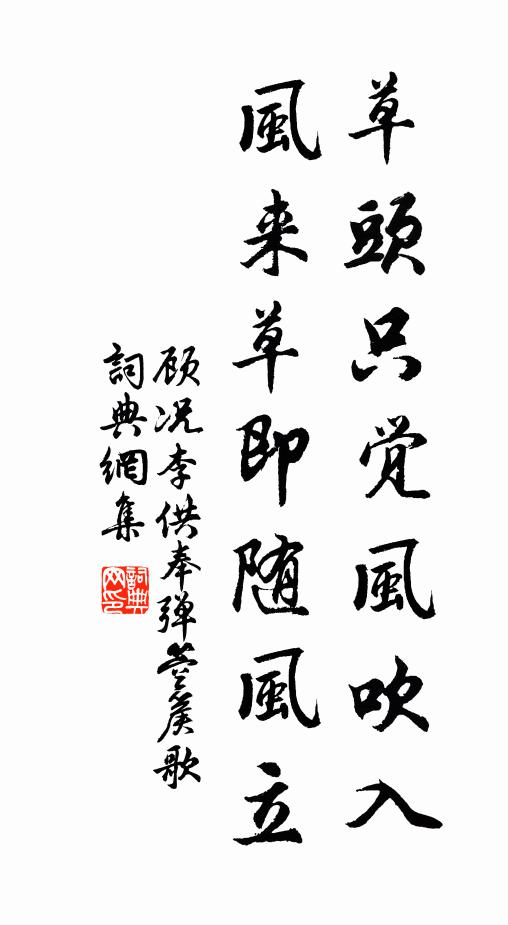 草頭只覚風吹入
風来草即随風立
顾况李供奉弹箜篌歌
詞典網集
詞典網印